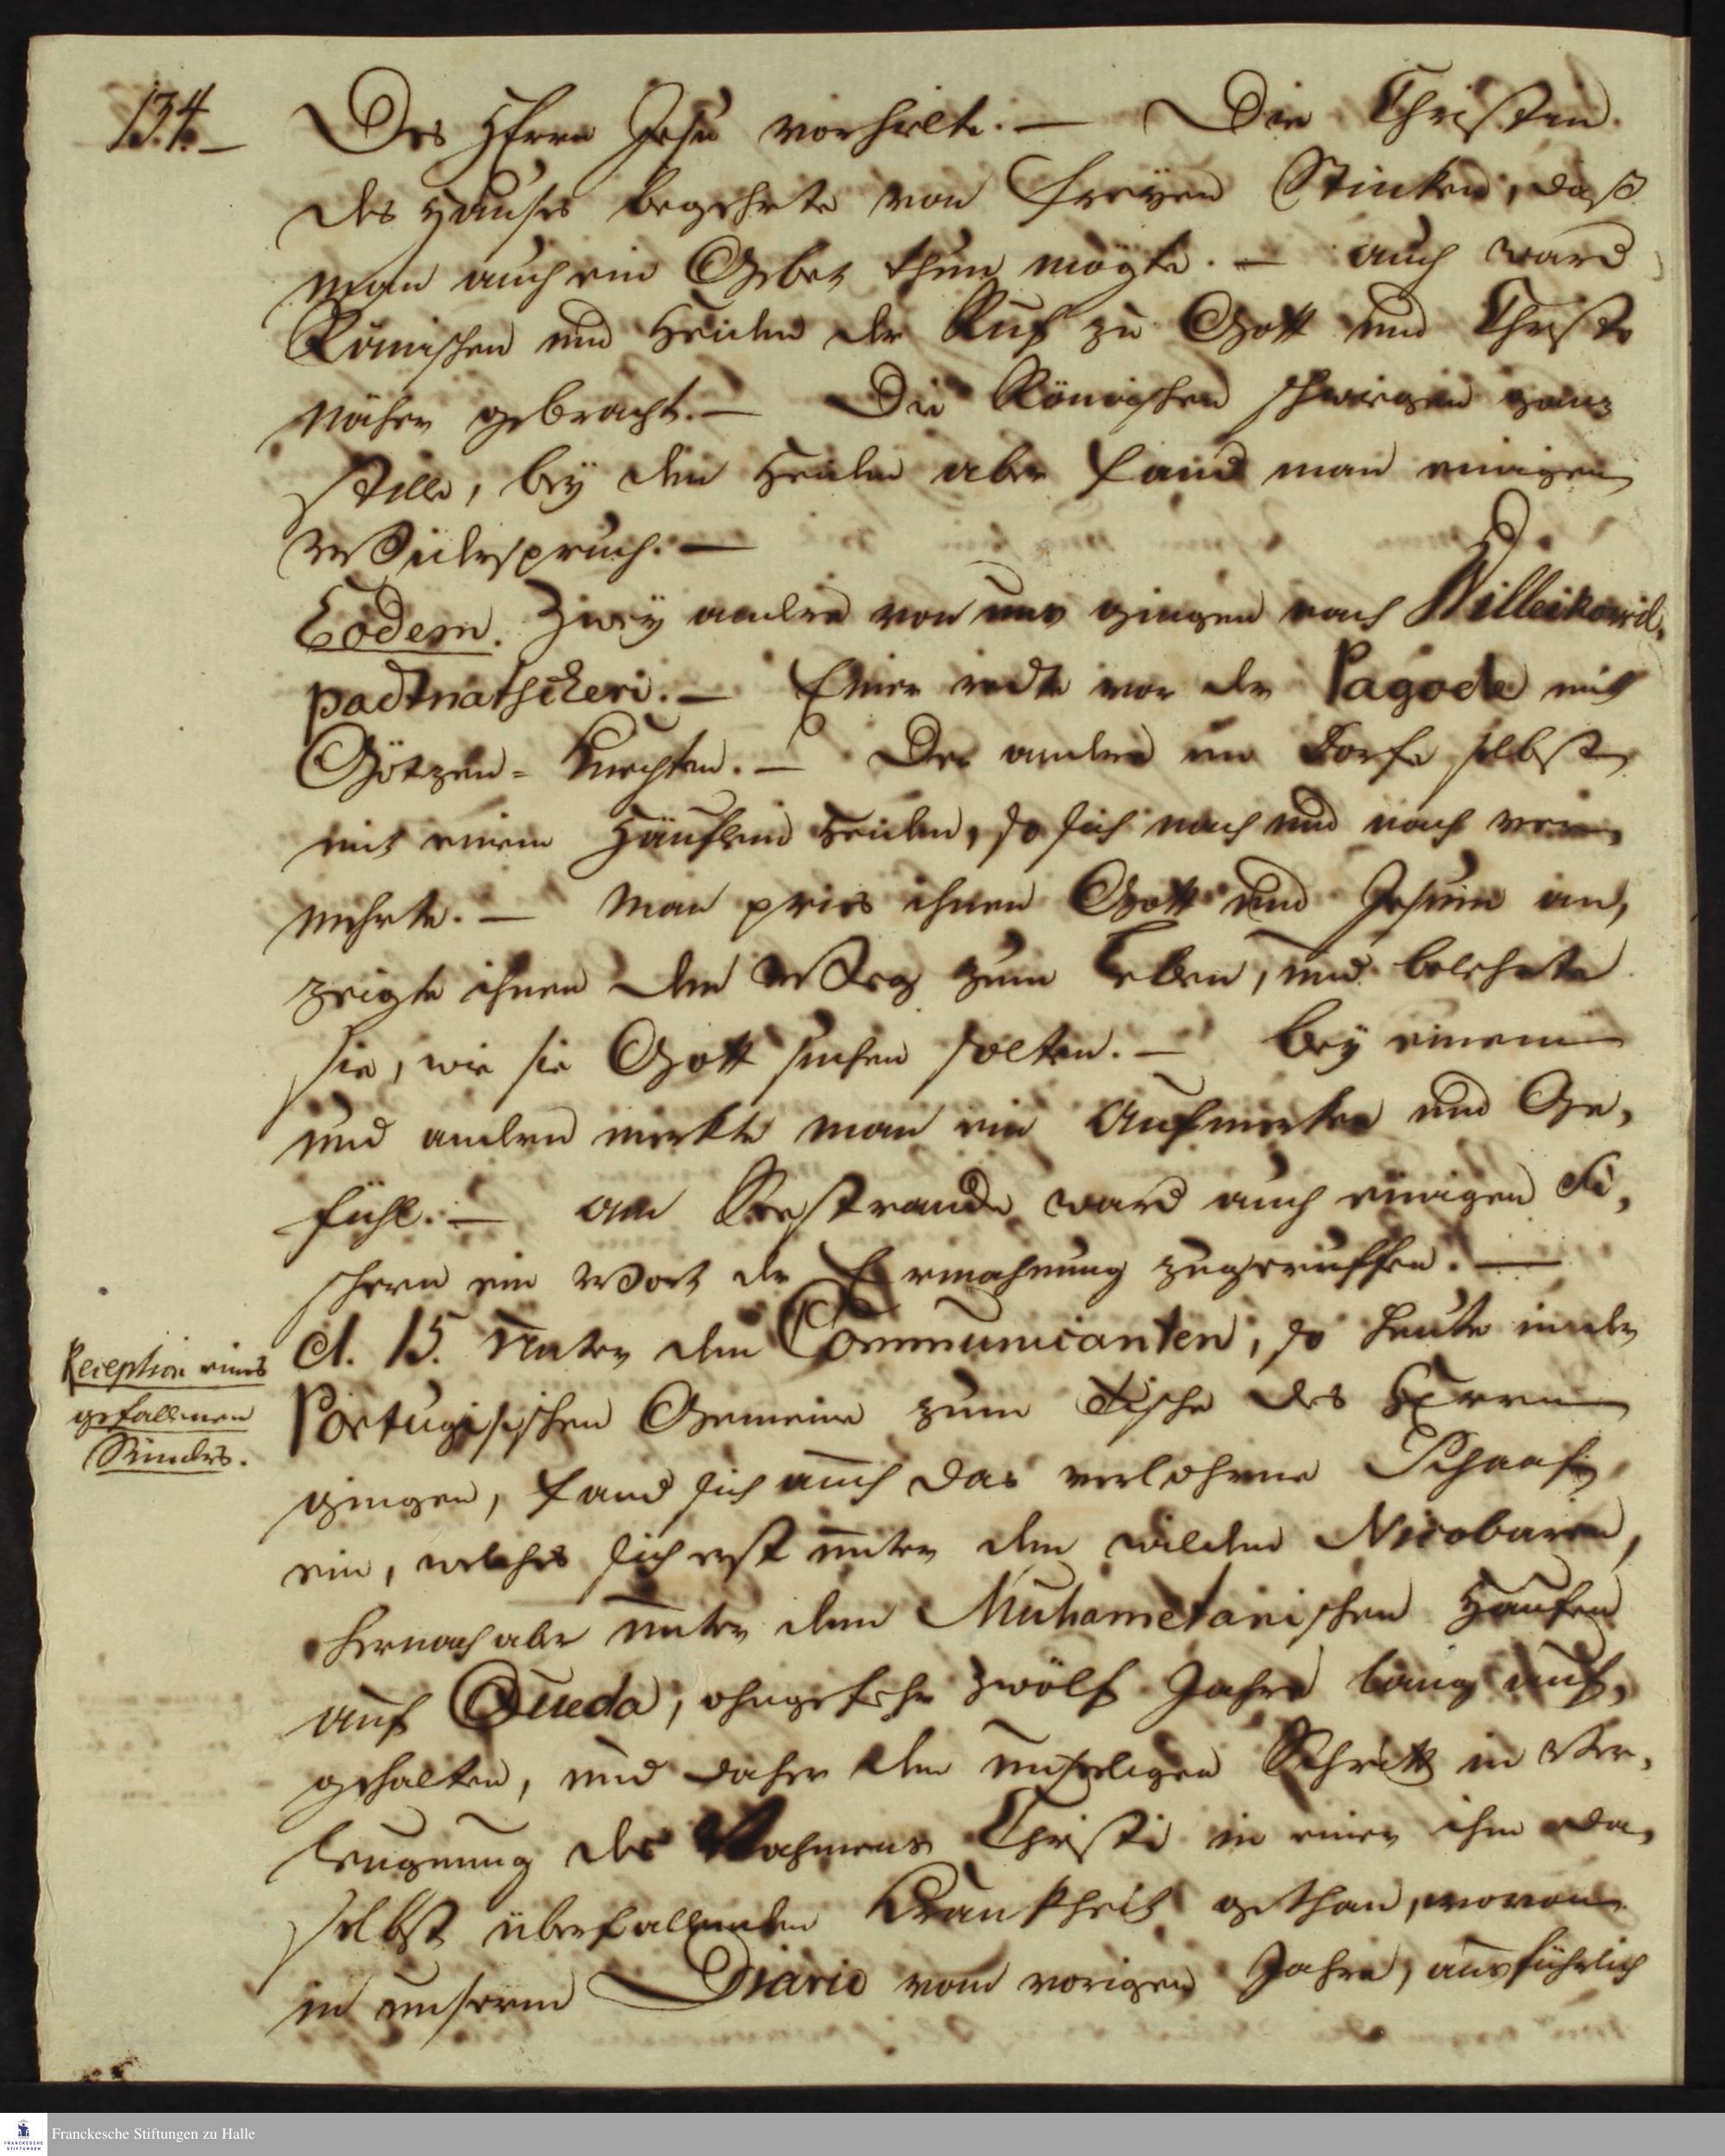 134.
Des HErrn Jesu vorhielte. — Die Christin
des Hauses begehrte von freyen Stücken, daß
man auch ein Gebet thun mögte. — auch ward
Römischen und Heiden der Ruf zu Gott und Christo
näher gebracht. — Die Römischen schwiegen ganz
stille, bey den Heiden aber fand man einigen
Widerspruch. —
Eodem. Zwey andre von uns gingen nach Willeikowil,
padtnatscheri. — Einer redte vor der Pagode mit
Götzen-Knechten. — Der andre im Dorfe selbst
mit einem Häuflein Heiden, so sich nach und nach ver,
mehrte. — Man pries ihnen Gott und Jesum an,
zeigte ihnen den Weg zum Leben, und belehrte
sie, wie sie Gott suchen solten. — Bey einem
und andern merkte man ein Aufmerken und Ge,
fühl. — Am Seestrande ward auch einigen Fi,
schern ein Wort der Ermahnung zugeruffen. —
Reception eines
gefallenen
Sünders.
d. 15. Unter den Communicanten, so heute in der
Portugisischen Gemeine zum Tische des HErrn
gingen, fand sich auch das verlohrne Schaaf
ein, welches sich erst unter den wilden Nicobaren,
hernach aber unter dem Muhametanischen Haufen
auf Queda, ohngefehr zwölf Jahre lang auf,
gehalten, und daher den unseligen Schritt in Ver,
leugnung des Nahmens Christi in einer ihn da,
selbst überfallenden Krankheit gethan, wovon
in unserm Diario vom vorigen Jahre, ausführlich
Franckesche Stiftungen zu Halle
FRANCKESCHE
STIFTUNGEN